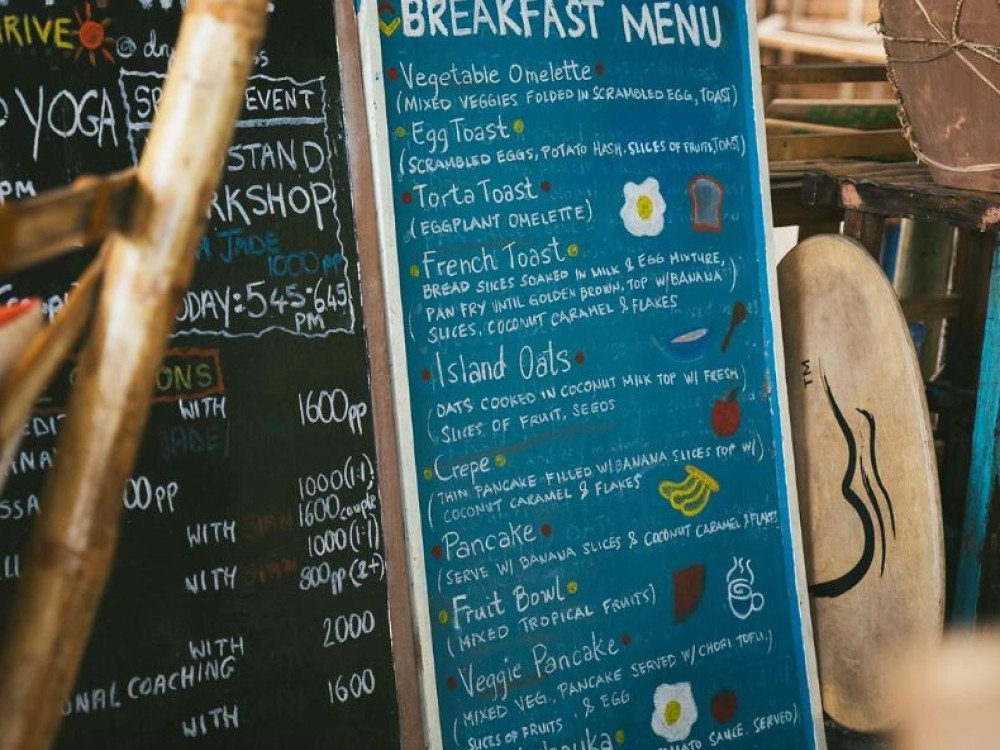 BREAKFAST MENU
Vegetable Omelette
(MIXED VEGGIES FOLDED IN SCRAMBLED EGG, TOAST)
Egg Toast
(SCRAMBLED EGGS, POTATO HASH, SLICES OF FRUITS, TOAST)
Torta Toast
(EGGPLANT OMELETTE)
French Toast
(BREAD SLICES SOAKED IN MILK & EGG MIXTURE,
PAN FRY UNTIL GOLDEN BROWN, TOP W/ BANANA
SLICES, COCONUT CARAMEL & FLAKES)
Island Oats
(OATS COOKED IN COCONUT MILK TOP W/ FRESH
SLICES OF FRUIT, SEEDS)
Crepe
(THIN PANCAKE FILLED W/ BANANA SLICES TOP W/)
COCONUT CARAMEL & FLAKES
Pancake
(SERVE W/ BANANA SLICES & COCONUT CARAMEL & FLAKES
Fruit Bowl
(MIXED TROPICAL FRUITS)
Veggie Pancake
(MIXED VEG, PANCAKE SERVED W/ CHORI TOFU,)
SLICES OF FRUITS, & EGG
SAUCE, SERVED)
YOGA
EVENT
STAND
PM
JADE
1000 pp
545-645
PM
WITH
1600pp
JADE
1000 (1:1)
1600 couple
WITH
1000 (1:1)
WITH
800pp (2+)
2000
WITH
COACHING
1600
WITH
TM